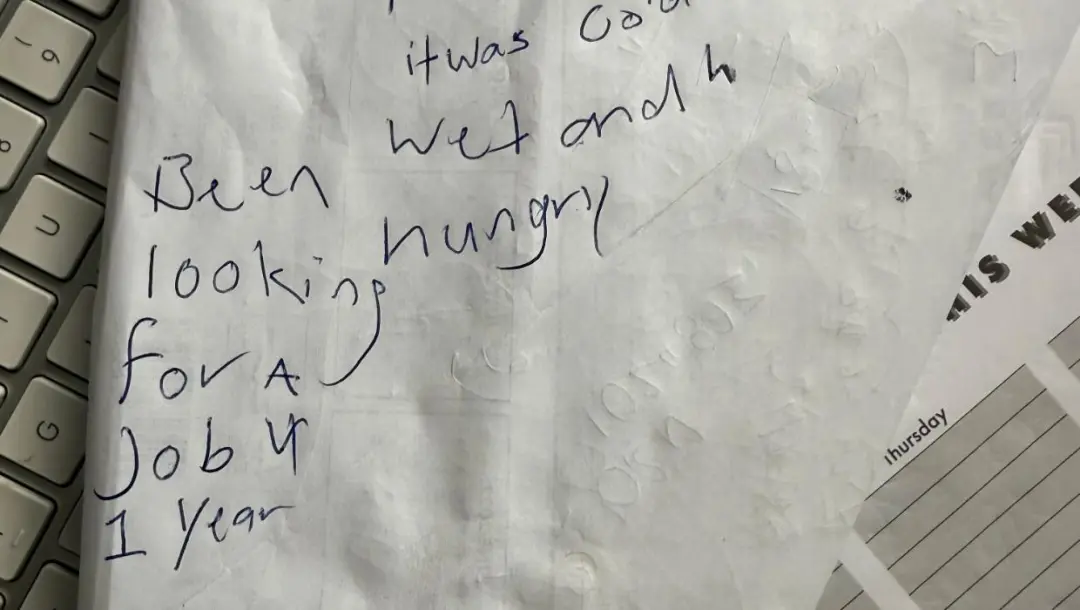 it was
wet and h
hungry
Been
looking
for A
Job 4
1 Year
THIS WEE
Thursday
9
U
G